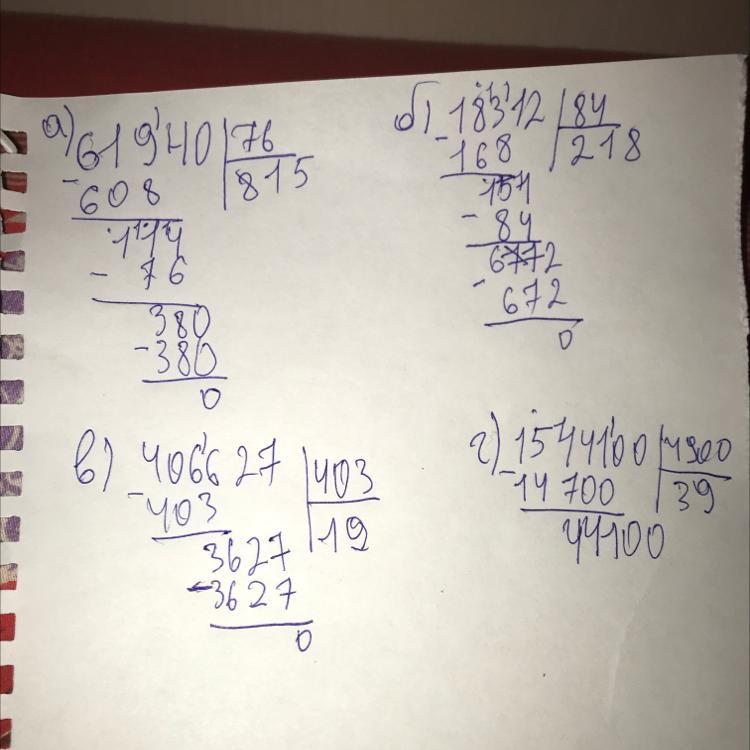 а) 61940 | 76
- 608 | 815
114
- 76
380
- 380
0
б) 18312 | 84
- 168 | 218
151
- 84
672
- 672
0
в) 406627 | 403
- 403 | 19
3627
- 3627
0
г) 1544100 | 4900
- 14700 | 39
44100